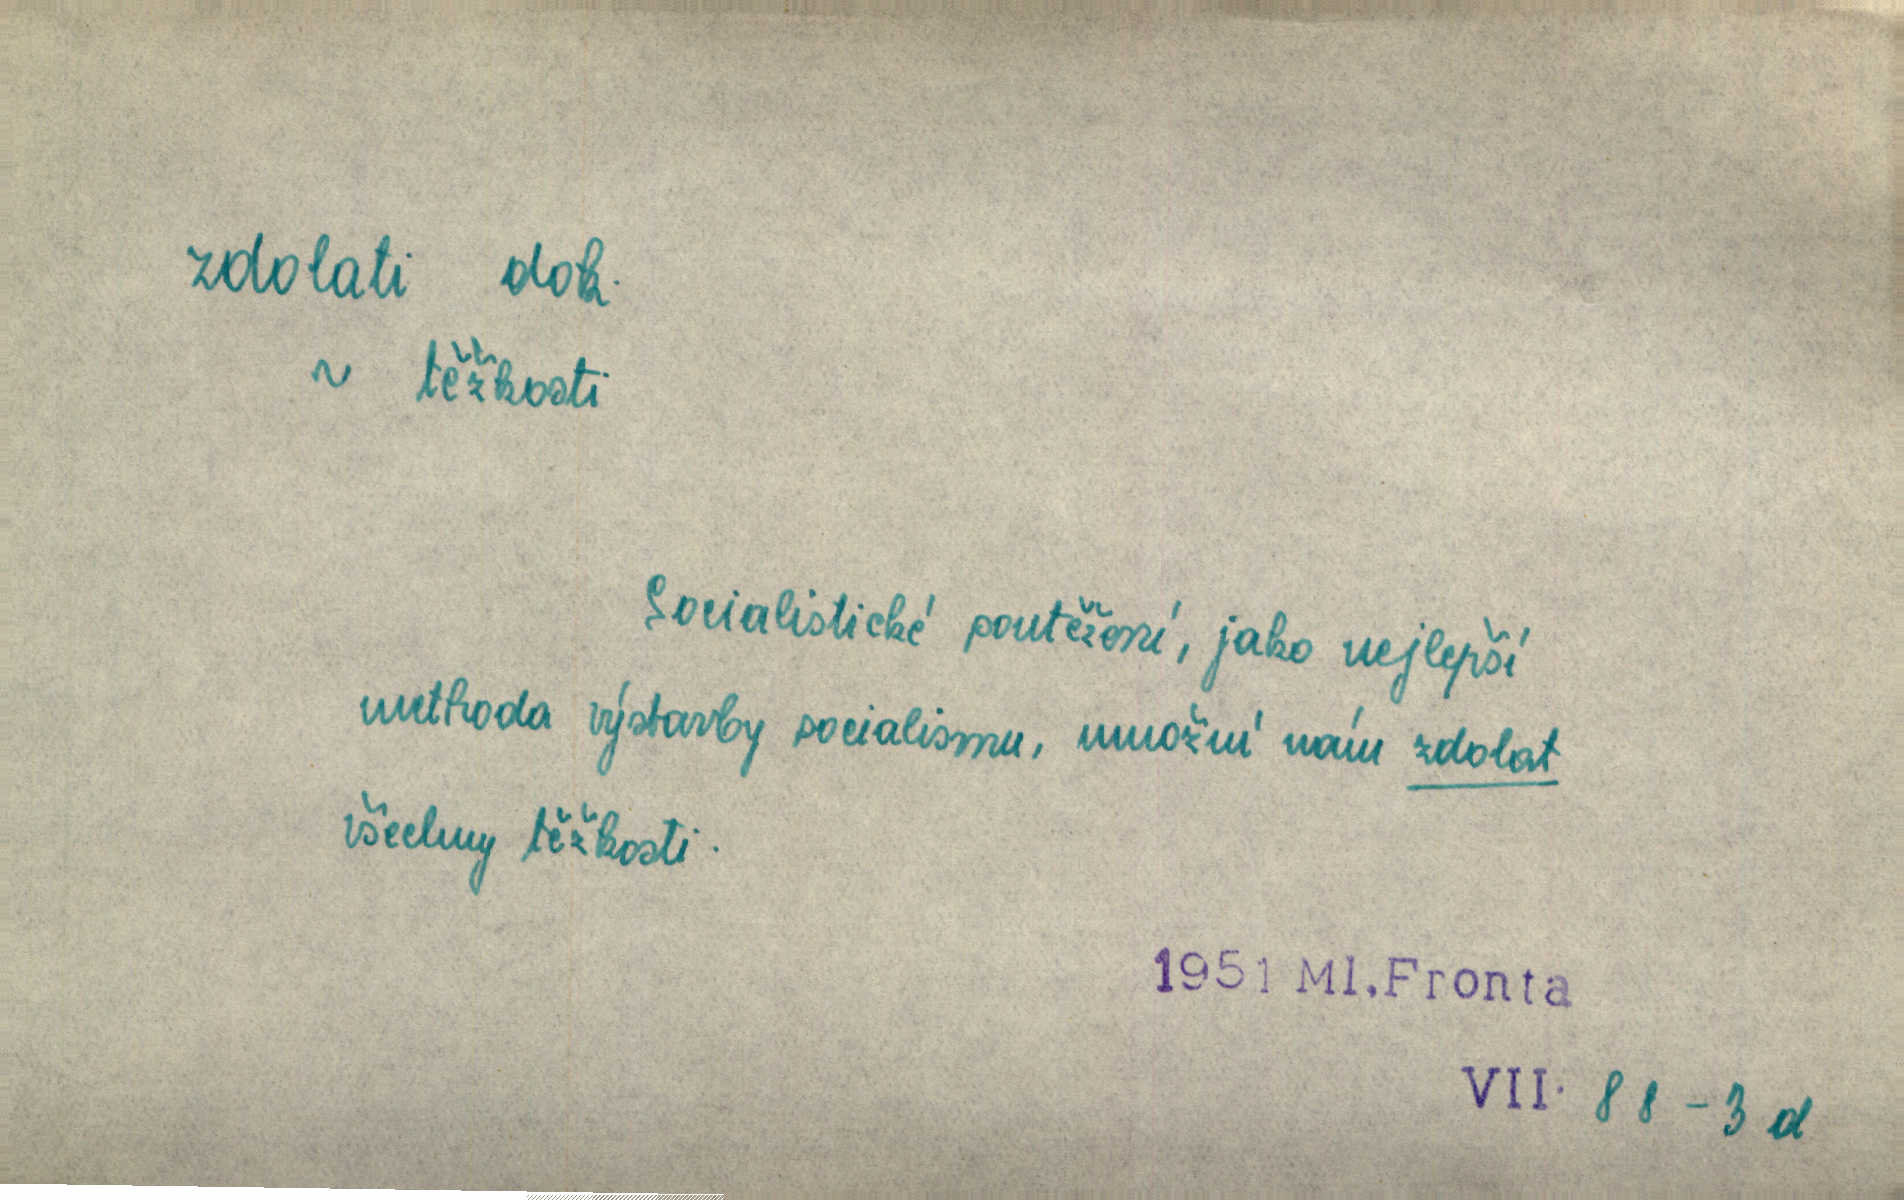 zdolati dok.
~ těžkosti
Socialistické soutěžení, jako nejlepší
methoda výstavby socialismu, umožní nám zdolat
všechny těžkosti.
1951 Ml.Fronta
VII. 88 - 3 d